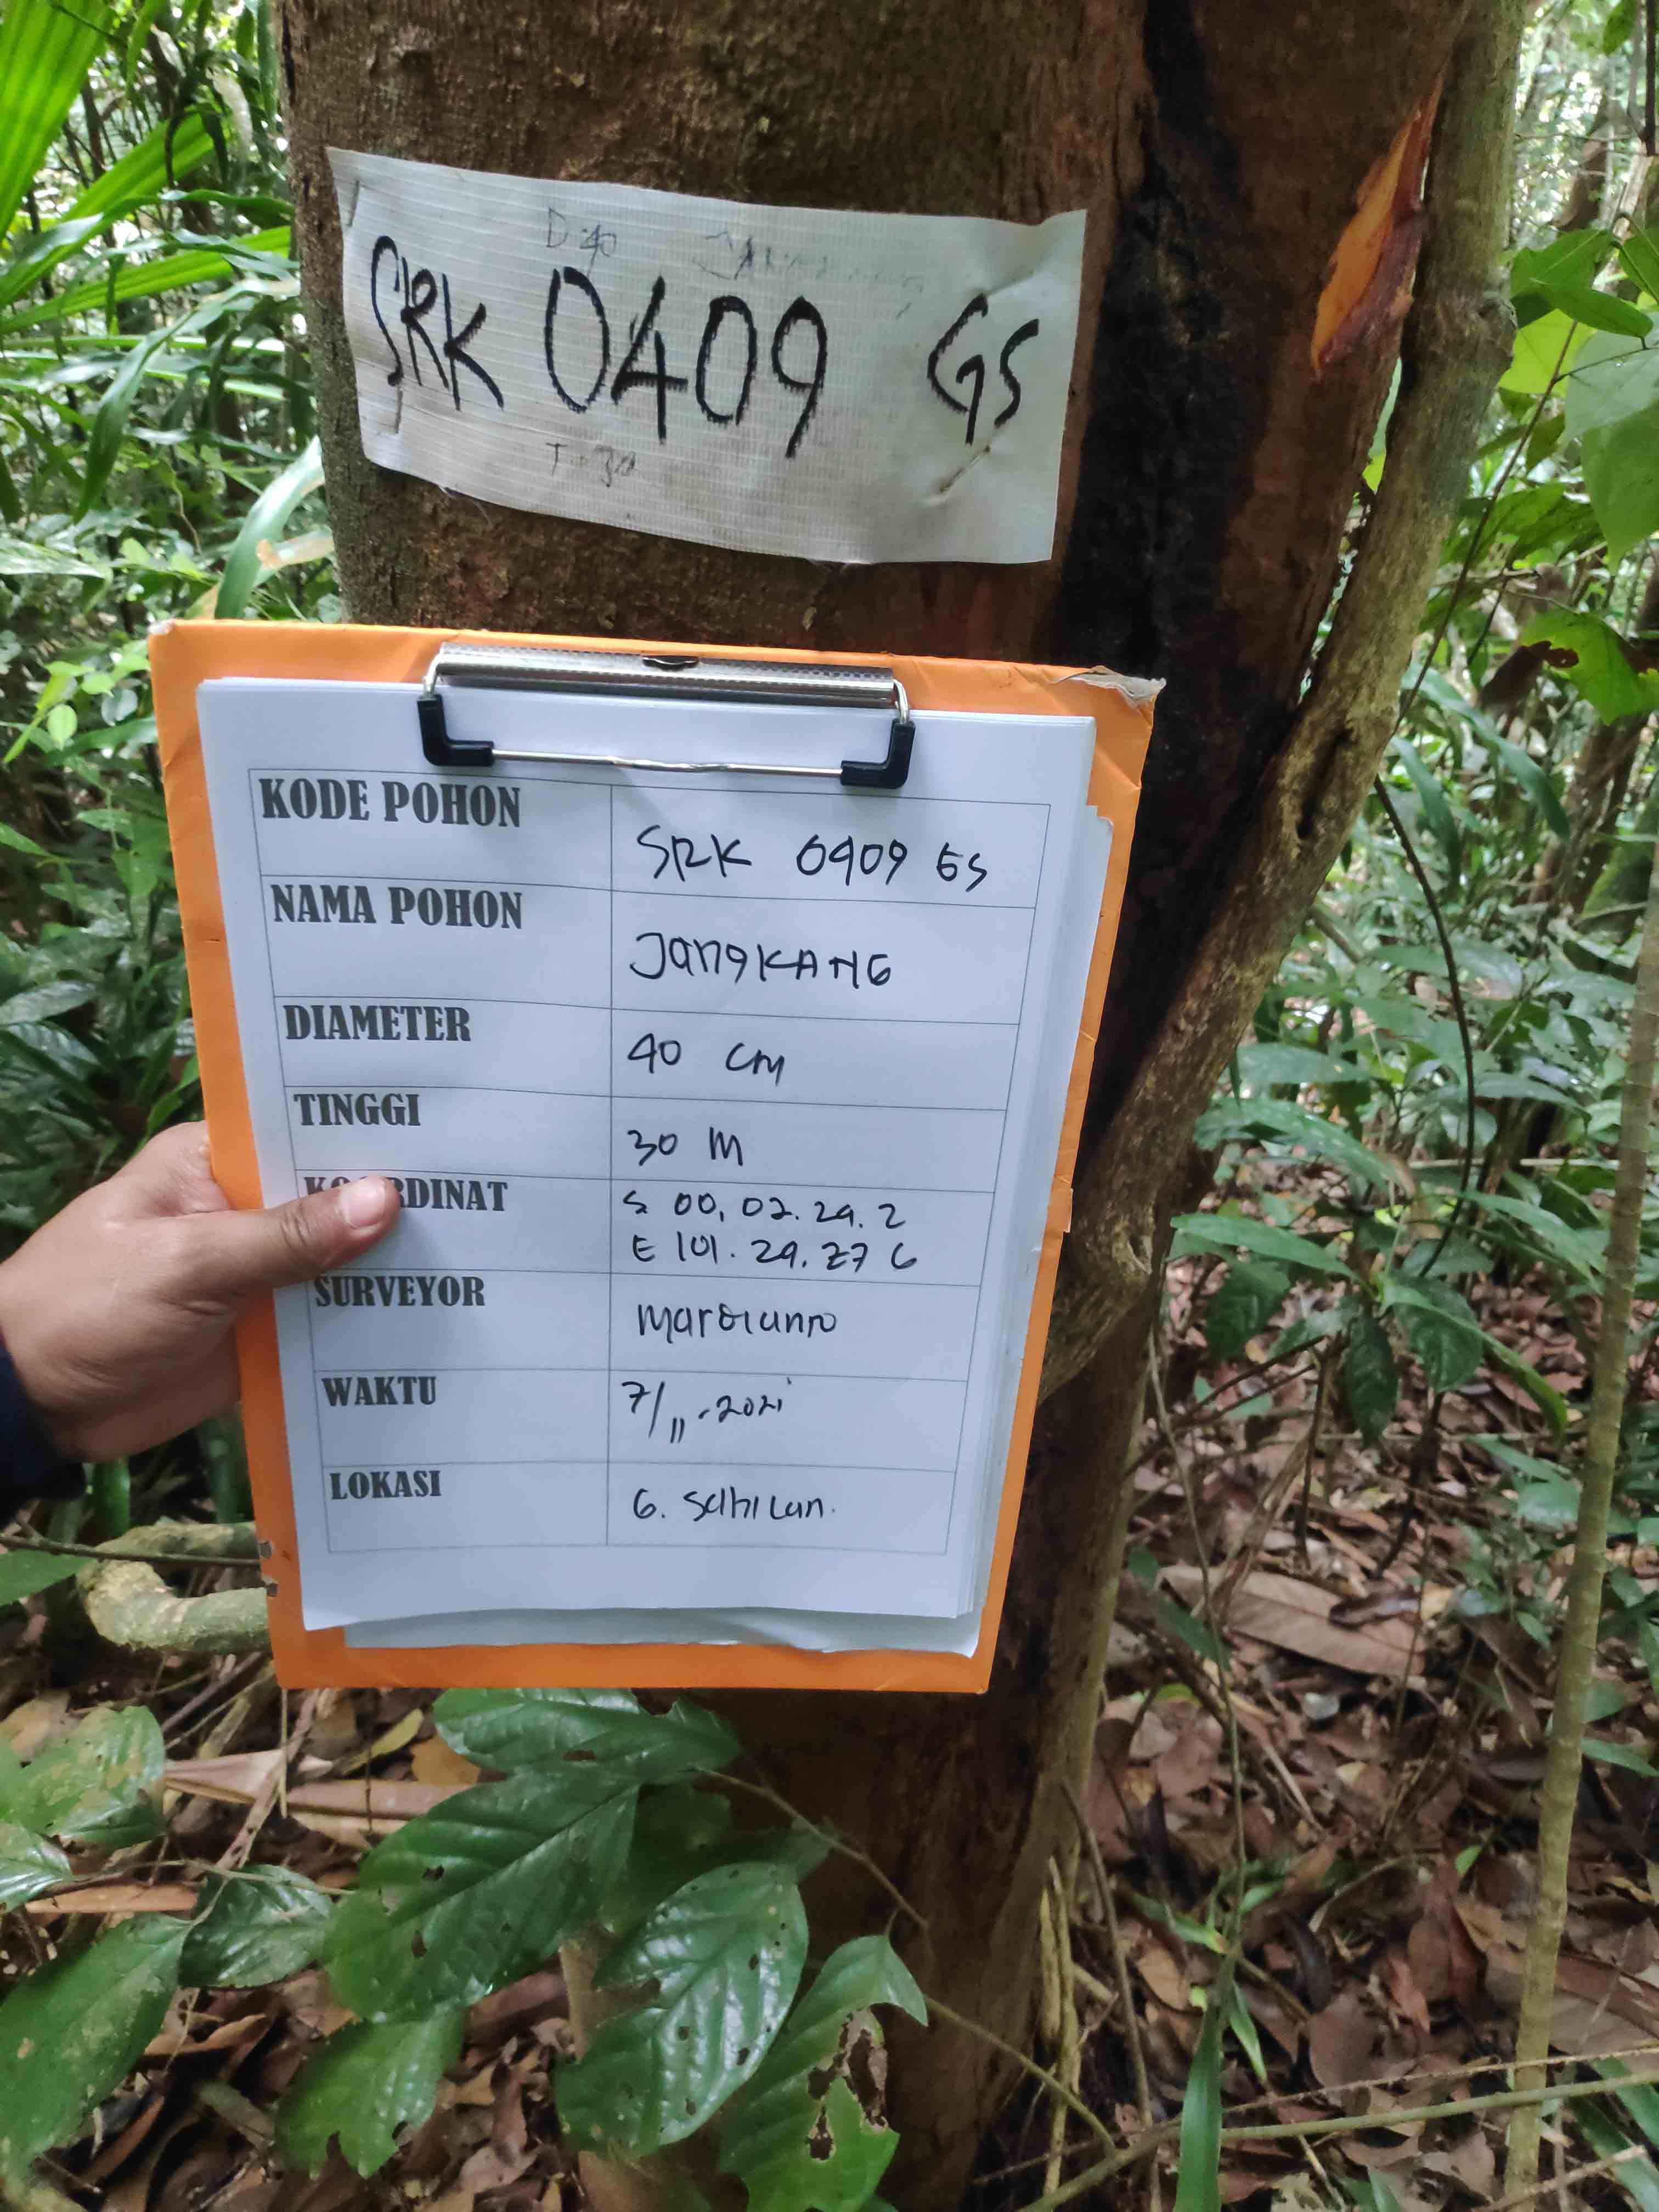 D:40
SRK 0409 GS
T:30
KODE POHON
SRK 0409 GS
NAMA POHON
JangKANG
DIAMETER
40 cm
TINGGI
30 M
KOORDINAT
S 00, 02. 29. 2
E 101. 29. 27 6
SURVEYOR
WAKTU
7/11-2021
LOKASI
G. Sahilan.